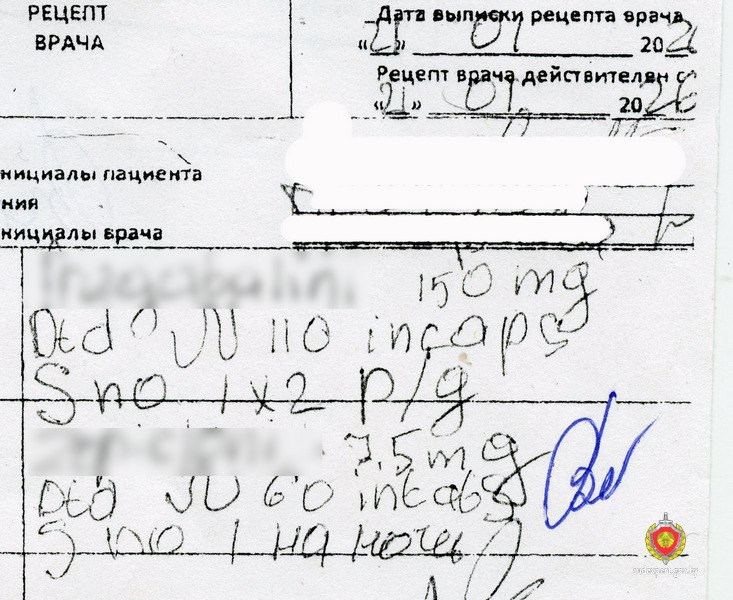 РЕЦЕПТ
ВРАЧА
Дата выписки рецепта врача
«21» 01 2026
Рецепт врача действителен с
«21» 01. 2026 г.
нициалы пациента
ния
нициалы врача
150 mg
Dtd № 110 in caps
S по 1 x 2 р/д
7,5 mg
Dtd № 60 in tabs
S по 1 на ночь
sudexpert.gov.by